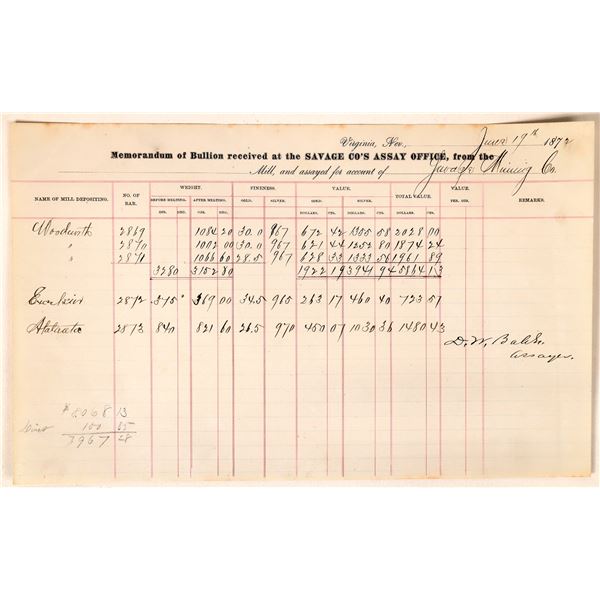 Virginia, Nev., June 19th 1872
Memorandum of Bullion received at the SAVAGE CO'S ASSAY OFFICE, from the
Mill, and assayed for account of Savage Mining Co.
NAME OF MILL DEPOSITING. NO. OF BAR. WEIGHT. FINENESS. VALUE. TOTAL VALUE. VALUE. PER. OZS. REMARKS.
BEFORE MELTING. AFTER MELTING. GOLD. SILVER. GOLD. SILVER.
OZS. DEC. OZS. DEC. DOLLARS. CTS. DOLLARS. CTS. DOLLARS. CTS.
Woodworth 2869 1084 20 30.0 967 672 42 1355 58 2028 00
" 2870 1002 00 30.0 967 621 44 1252 80 1874 24
" 2871 1066 60 28.5 967 628 33 1333 56 1961 89
3280 3152 80 1922 19 3941 94 5864 13
Excelsior 2872 375 369 00 34.5 965 263 17 460 40 723 57
Atlantic 2873 840 821 60 26.5 970 450 07 1030 36 1480 43
D. W.
Assayer.
$ 8068 13
100 85
7967 28